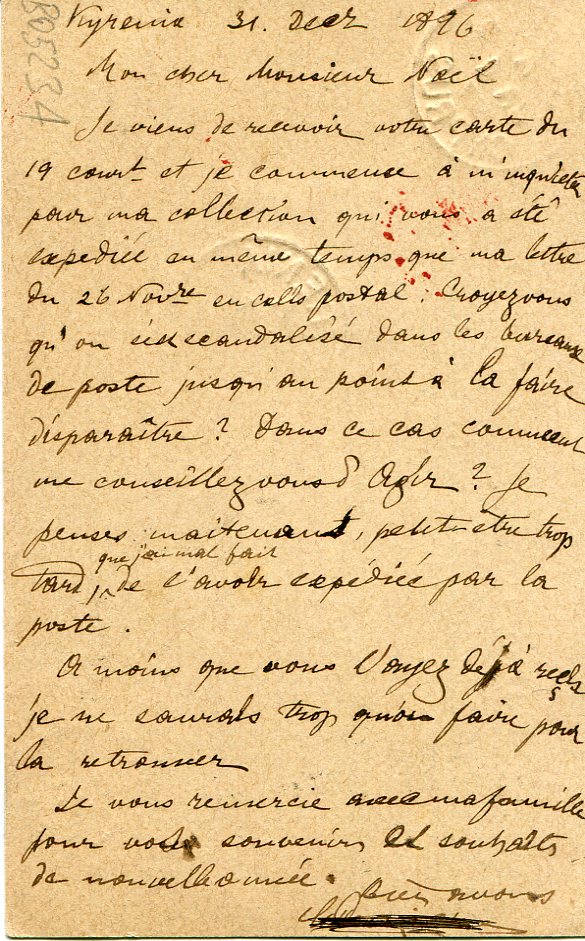 Kyrenia 31. Decr 1896
Mon cher Monsieur Noël
Je viens de recevoir votre carte du
19 court et je commence à m'inquieter
pour ma collection qui vous a été
expediée en même temps que ma lettre
du 26 Novre en colis postal: Croyez vous
qu'on s'est scandalisé dans les bureaux
de poste jusqu'au point à la faire
disparaître? Dans ce cas comment
me conseillez vous d'Agir? Je
penses maitenant, petit-être trop
que j'ai mal fait
tard, de l'avoir expédiée par la
poste.
A moins que vous l'ayez déjà
je ne saurais trop qu'en faire pour
la retrouver
Je vous remercie avec ma famille
pour vos souvenirs et souhaits
de nouvelle année.
bien à vous
B05234